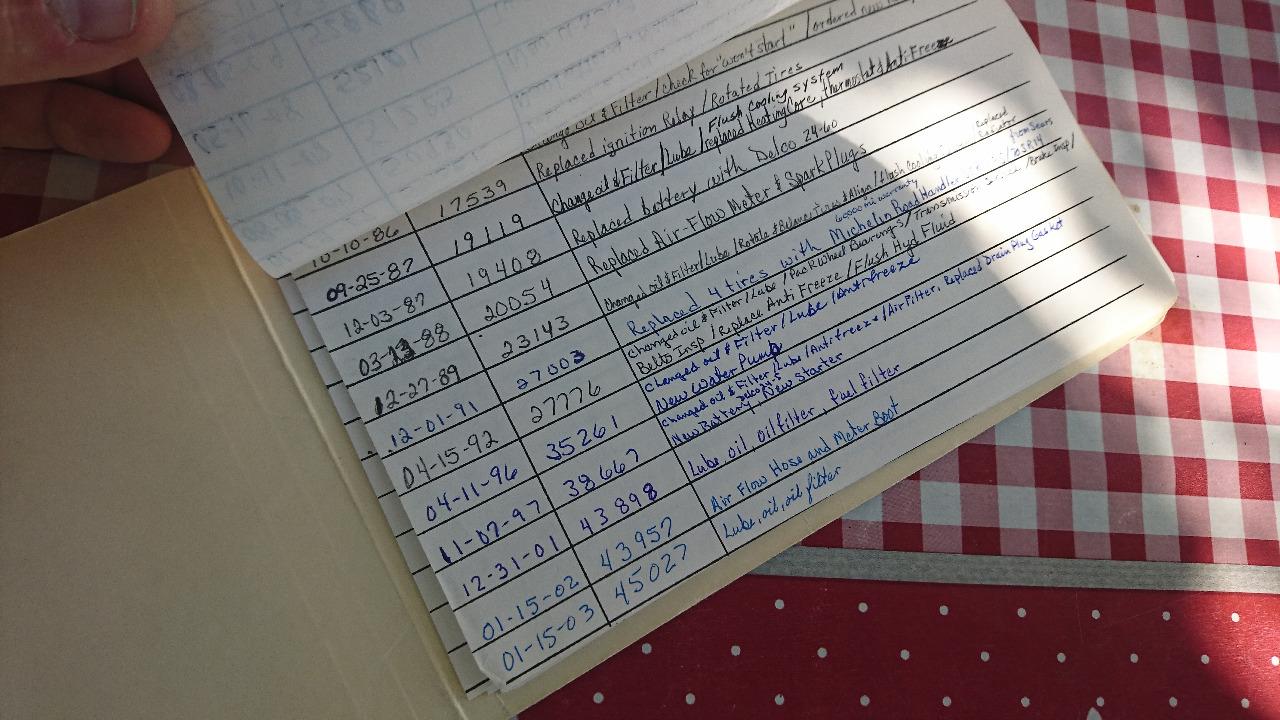 Change oil & Filter / check for "won't start" / ordered new
10-10-86 17539 Replaced ignition Relay / Rotated Tires
Flush cooling system
09-25-87 19119 Changed oil & Filter / Lube / replaced Heating Core, thermostat & Anti Freeze
12-03-87 19408 Replaced battery with Delco 24-60
03-88 20054 Replaced Air-Flow Meter & Spark Plugs
Replaced Radiator
12-27-89 23143 Changed oil & Filter / Lube / Rotate & Balance Tires & Align / Flash Cooling
60000 mi warranty from Sears
12-01-91 27003 Replaced 4 tires with Michelin Road Handler
04-15-92 27776 Changed oil & Filter / Lube / Pack Wheel Bearings / Transmission / Brake Insp /
Belts Insp / Replace Anti Freeze / Flush Hyd Fluid
04-11-96 35261 Changed oil & Filter / Lube / Antifreeze
New Water Pump
11-07-97 38667 Changed oil & Filter / Lube / Antifreeze / Air Filter, Replaced Drain Plug Gasket
New Battery, New Starter
12-31-01 43898 Lube, oil, oil filter, fuel filter
01-15-02 43957 Air Flow Hose and Meter Boot
01-15-03 45027 Lube, oil, oil filter